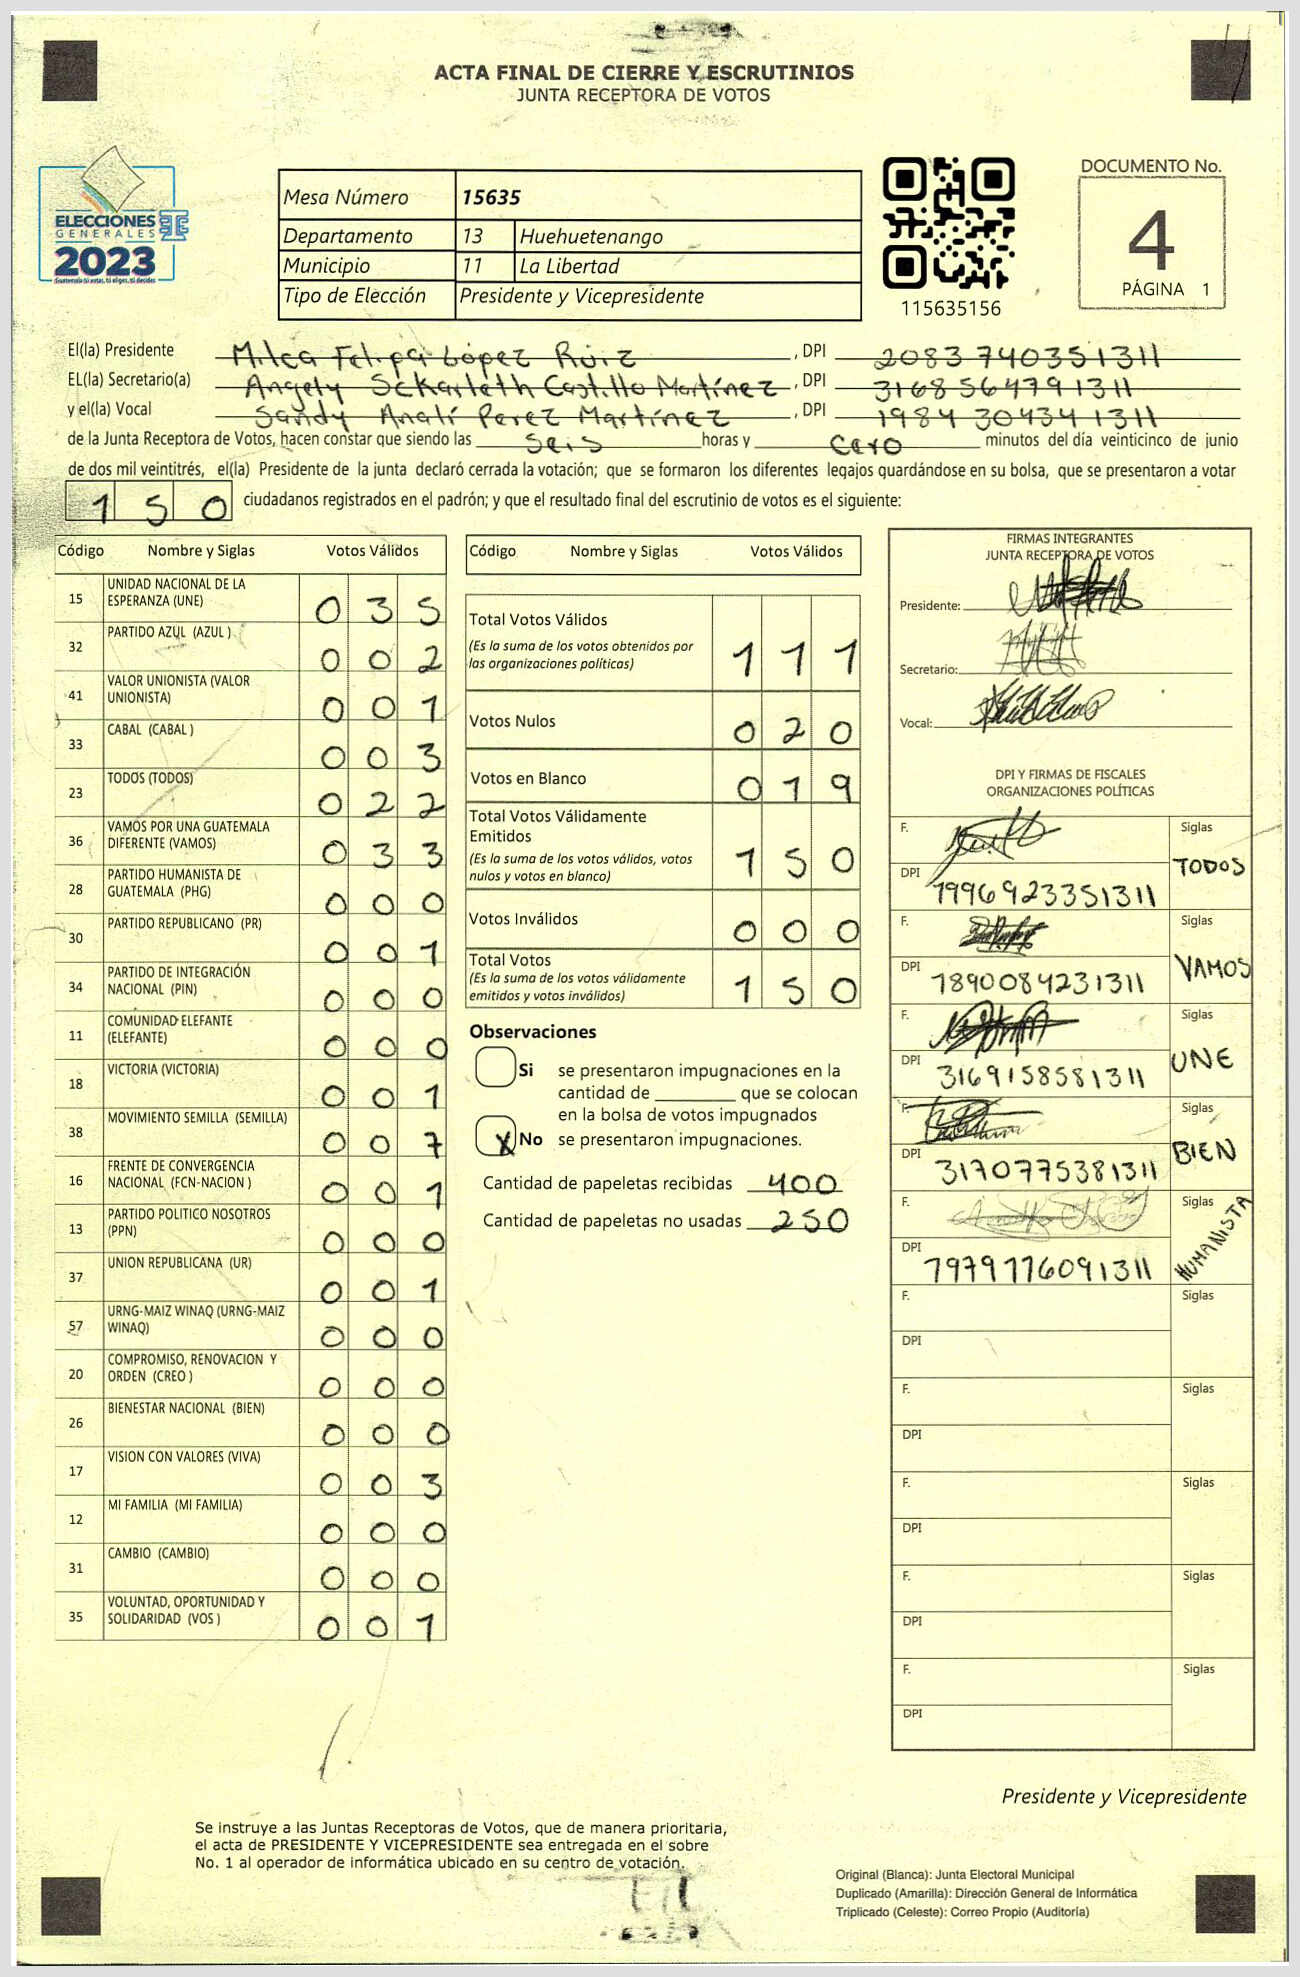 ACTA FINAL DE CIERRE Y ESCRUTINIOS
JUNTA RECEPTORA DE VOTOS
ELECCIONES
GENERALES
2023
Guatemala tú votas, tú eliges, tú decides
Mesa Número 15635
Departamento 13 Huehuetenango
Municipio 11 La Libertad
Tipo de Elección Presidente y Vicepresidente
115635156
DOCUMENTO No.
4
PÁGINA 1
El(la) Presidente Milca Felipa López Ruiz, DPI 2083740351311
EL(la) Secretario(a) Angely Sckarleth Castillo Martínez, DPI 3168564791311
y el(la) Vocal Sandy Analí Perez Martínez, DPI 1984304341311
de la Junta Receptora de Votos, hacen constar que siendo las Seis horas y Cero minutos del día veinticinco de junio
de dos mil veintitrés, el(la) Presidente de la junta declaró cerrada la votación; que se formaron los diferentes legajos guardándose en su bolsa, que se presentaron a votar
150 ciudadanos registrados en el padrón; y que el resultado final del escrutinio de votos es el siguiente:
Código Nombre y Siglas Votos Válidos
15 UNIDAD NACIONAL DE LA ESPERANZA (UNE) 035
32 PARTIDO AZUL (AZUL ) 002
41 VALOR UNIONISTA (VALOR UNIONISTA) 001
33 CABAL (CABAL ) 003
23 TODOS (TODOS) 022
36 VAMOS POR UNA GUATEMALA DIFERENTE (VAMOS) 033
28 PARTIDO HUMANISTA DE GUATEMALA (PHG) 000
30 PARTIDO REPUBLICANO (PR) 001
34 PARTIDO DE INTEGRACIÓN NACIONAL (PIN) 000
11 COMUNIDAD ELEFANTE (ELEFANTE) 000
18 VICTORIA (VICTORIA) 001
38 MOVIMIENTO SEMILLA (SEMILLA) 007
16 FRENTE DE CONVERGENCIA NACIONAL (FCN-NACION ) 001
13 PARTIDO POLITICO NOSOTROS (PPN) 000
37 UNION REPUBLICANA (UR) 001
57 URNG-MAIZ WINAQ (URNG-MAIZ WINAQ) 000
20 COMPROMISO, RENOVACION Y ORDEN (CREO ) 000
26 BIENESTAR NACIONAL (BIEN) 000
17 VISION CON VALORES (VIVA) 003
12 MI FAMILIA (MI FAMILIA) 000
31 CAMBIO (CAMBIO) 000
35 VOLUNTAD, OPORTUNIDAD Y SOLIDARIDAD (VOS ) 001
Código Nombre y Siglas Votos Válidos
Total Votos Válidos 111
(Es la suma de los votos obtenidos por
las organizaciones políticas)
Votos Nulos 020
Votos en Blanco 019
Total Votos Válidamente
Emitidos 150
(Es la suma de los votos válidos, votos
nulos y votos en blanco)
Votos Inválidos 000
Total Votos 150
(Es la suma de los votos válidamente
emitidos y votos inválidos)
Observaciones
Si se presentaron impugnaciones en la
cantidad de ________ que se colocan
en la bolsa de votos impugnados
X No se presentaron impugnaciones.
Cantidad de papeletas recibidas 400
Cantidad de papeletas no usadas 250
FIRMAS INTEGRANTES
JUNTA RECEPTORA DE VOTOS
Presidente:
Secretario:
Vocal:
DPI Y FIRMAS DE FISCALES
ORGANIZACIONES POLÍTICAS
F. Siglas TODOS
DPI 1996923351311
F. Siglas VAMOS
DPI 1890084231311
F. Siglas UNE
DPI 3169158581311
F. Siglas BIEN
DPI 3170775381311
F. Siglas HUMANISTA
DPI 1979776091311
F. Siglas
DPI
F. Siglas
DPI
F. Siglas
DPI
F. Siglas
DPI
F. Siglas
DPI
Presidente y Vicepresidente
Se instruye a las Juntas Receptoras de Votos, que de manera prioritaria,
el acta de PRESIDENTE Y VICEPRESIDENTE sea entregada en el sobre
No. 1 al operador de informática ubicado en su centro de votación.
Original (Blanca): Junta Electoral Municipal
Duplicado (Amarilla): Dirección General de Informática
Triplicado (Celeste): Correo Propio (Auditoría)